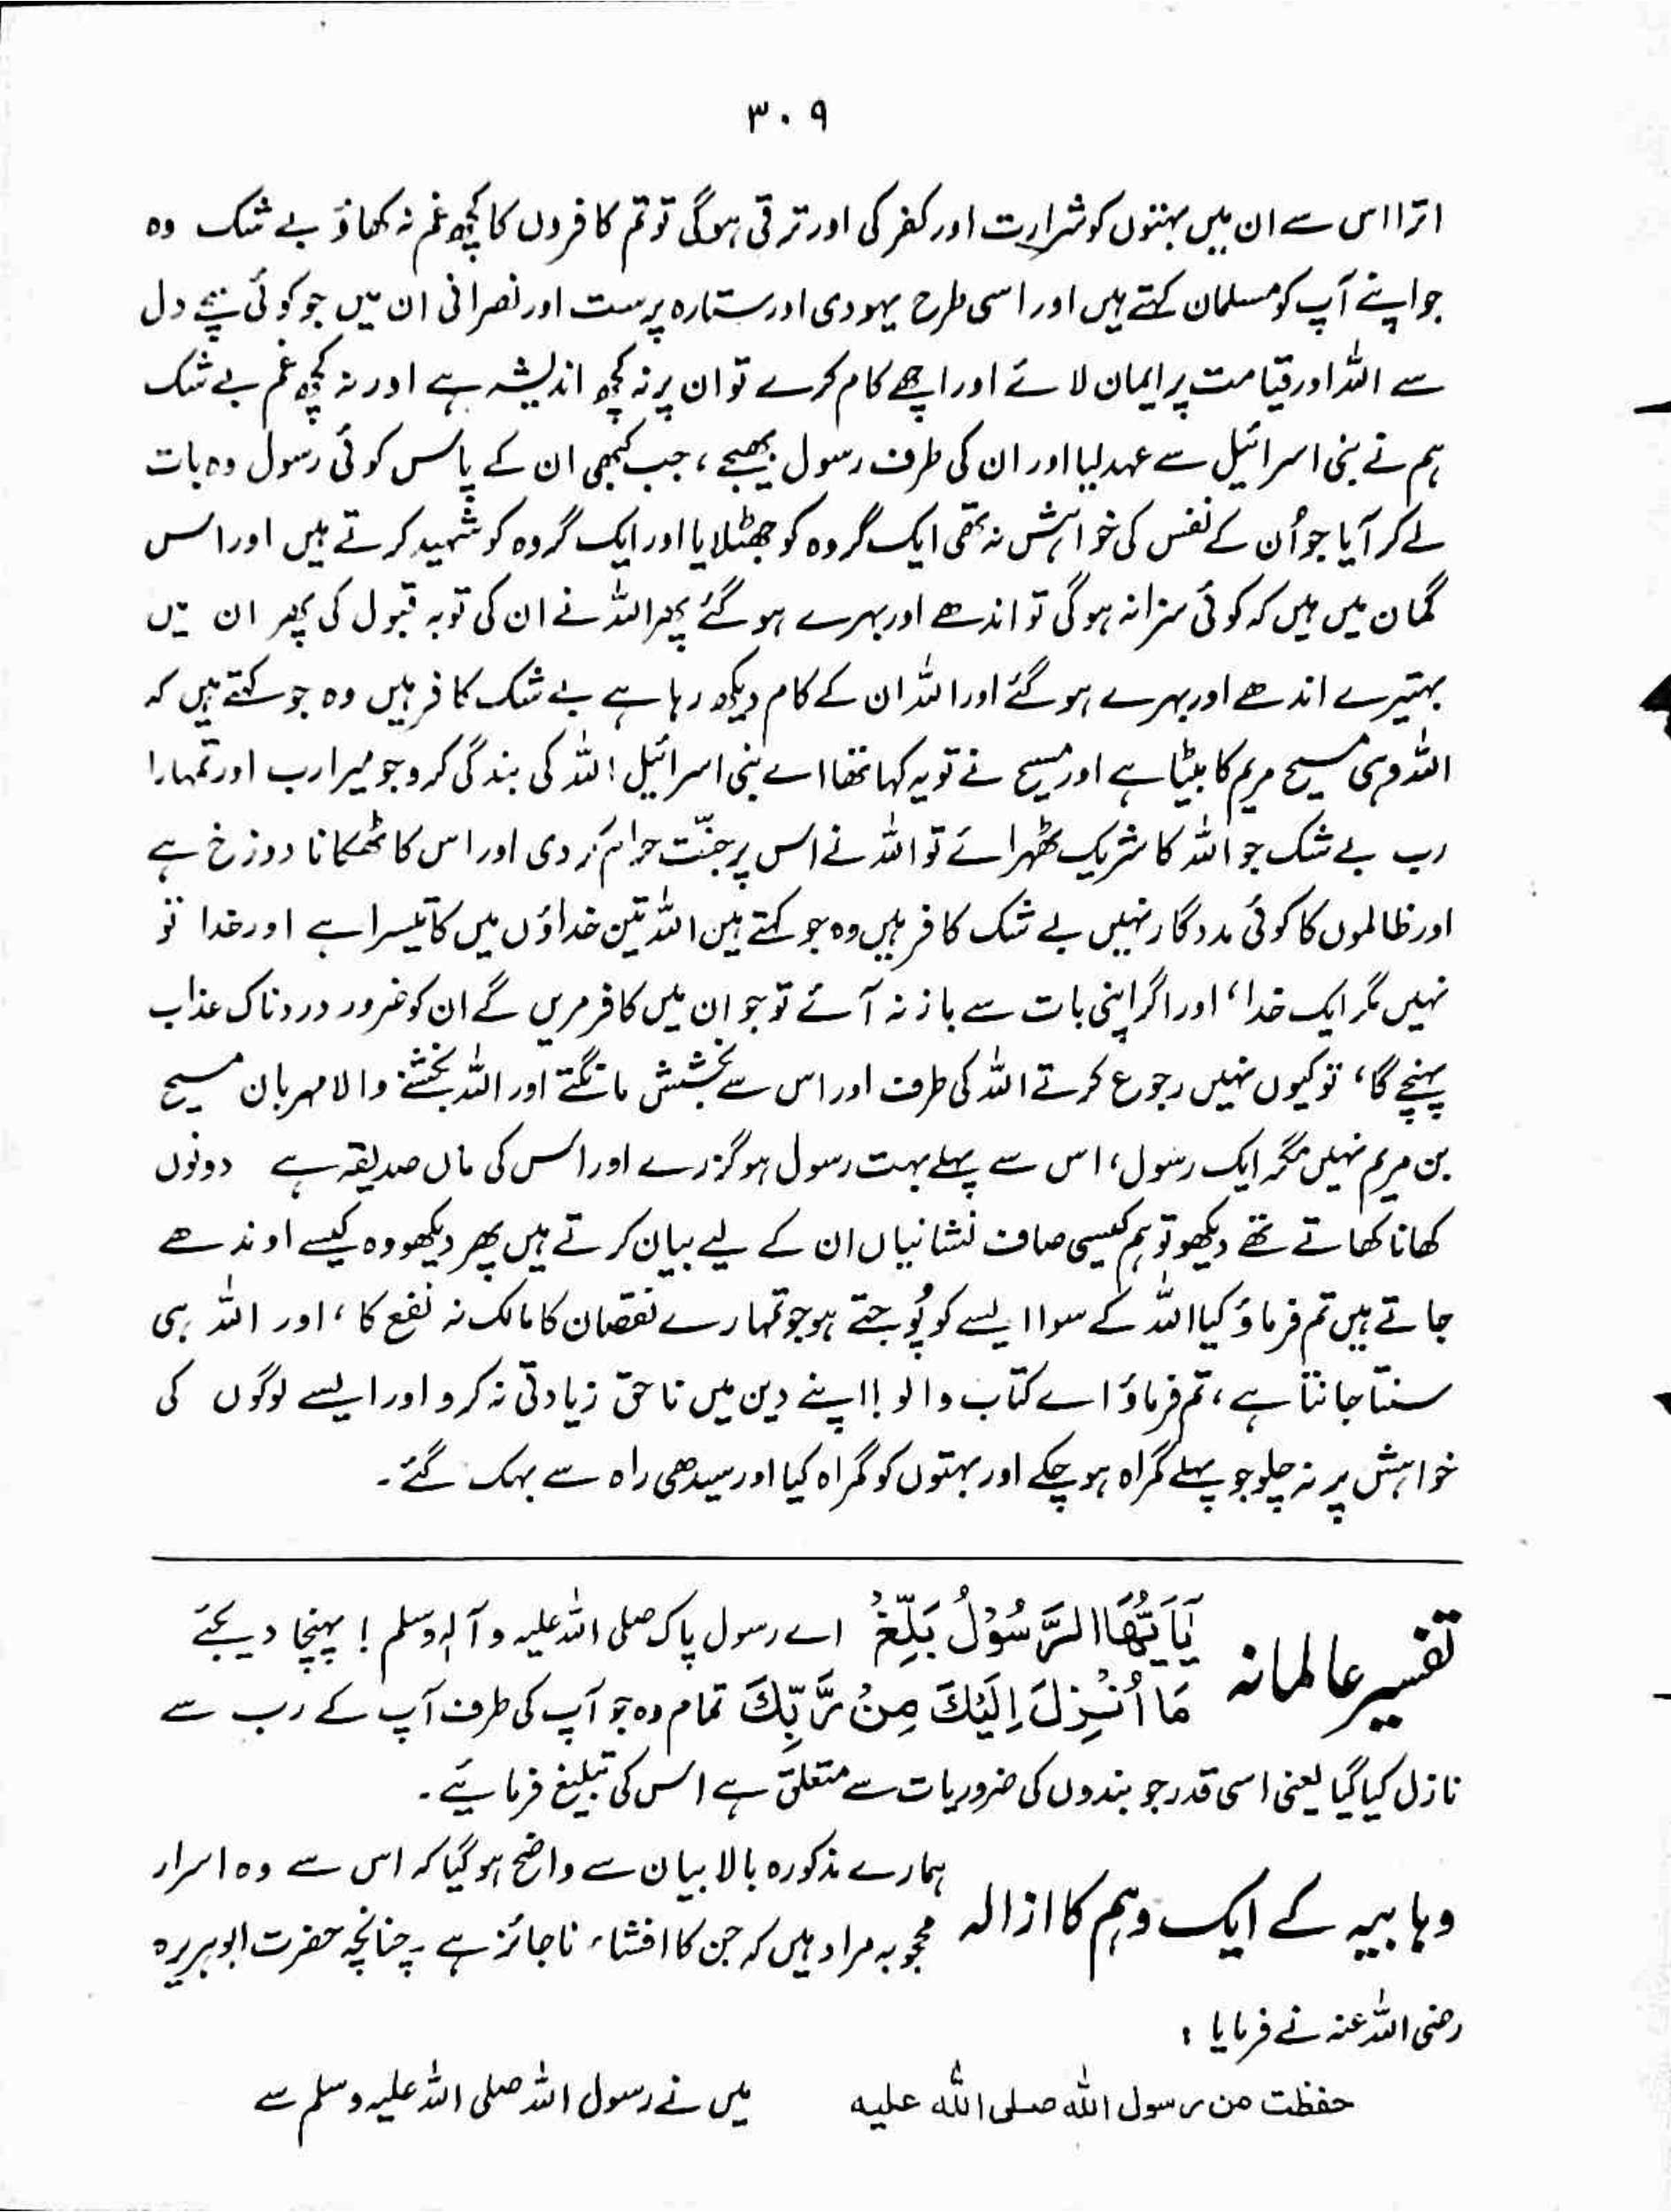 ۳۰۹
اترا اس سے ان میں بہتوں کو شرارت اور کفر کی اور ترقی ہوگی تو تم کافروں کا کچھ غم نہ کھاؤ بے شک وہ
جو اپنے آپ کو مسلمان کہتے ہیں اور اسی طرح یہودی اور ستارہ پرست اور نصرانی ان میں جو کوئی سچے دل
سے اللہ اور قیامت پر ایمان لائے اور اچھے کام کرے تو ان پر نہ کچھ اندیشہ ہے اور نہ کچھ غم بے شک
ہم نے بنی اسرائیل سے عہد لیا اور ان کی طرف رسول بھیجے، جب کبھی ان کے پاس کوئی رسول وہ بات
لے کر آیا جو اُن کے نفس کی خواہش نہ تھی ایک گروہ کو جھٹلایا اور ایک گروہ کو شہید کرتے ہیں اور اس
گمان میں ہیں کہ کوئی سزا نہ ہوگی تو اندھے اور بہرے ہو گئے پھر اللہ نے ان کی توبہ قبول کی پھر ان میں
بہتیرے اندھے اور بہرے ہو گئے اور اللہ ان کے کام دیکھ رہا ہے بے شک کافر ہیں وہ جو کہتے ہیں کہ
اللہ وہی مسیح مریم کا بیٹا ہے اور مسیح نے تو یہ کہا تھا اے بنی اسرائیل! اللہ کی بندگی کرو جو میرا رب اور تمہارا
رب بے شک جو اللہ کا شریک ٹھہرائے تو اللہ نے اس پر جنّت حرام کر دی اور اس کا ٹھکانا دوزخ ہے
اور ظالموں کا کوئی مددگار نہیں بے شک کافر ہیں وہ جو کہتے ہیں اللہ تین خداؤں میں کا تیسرا ہے اور خدا تو
نہیں مگر ایک خدا، اور اگر اپنی بات سے باز نہ آئے تو جو ان میں کافر مریں گے ان کو ضرور دردناک عذاب
پہنچے گا، تو کیوں نہیں رجوع کرتے اللہ کی طرف اور اس سے بخشش مانگتے اور اللہ بخشنے والا مہربان مسیح
بن مریم نہیں مگر ایک رسول، اس سے پہلے بہت رسول ہو گزرے اور اس کی ماں صدیقہ ہے دونوں
کھانا کھاتے تھے دیکھو تو ہم کیسی صاف نشانیاں ان کے لیے بیان کرتے ہیں پھر دیکھو وہ کیسے اوندھے
جاتے ہیں تم فرماؤ کیا اللہ کے سوا ایسے کو پُوجتے ہو جو تمہارے نقصان کا مالک نہ نفع کا، اور اللہ ہی
سنتا جانتا ہے، تم فرماؤ اے کتاب والو! اپنے دین میں ناحق زیادتی نہ کرو اور ایسے لوگوں کی
خواہش پر نہ چلو جو پہلے گمراہ ہو چکے اور بہتوں کو گمراہ کیا اور سیدھی راہ سے بہک گئے۔
تفسیر عالمانہ يَٓاَيُّهَا الرَّسُوْلُ بَلِّغْ اے رسول پاک صلی اللہ علیہ وآلہٖ وسلم! پہنچا دیجئے
مَا اُنْزِلَ اِلَيْكَ مِنْ رَّبِّكَ تمام وہ جو آپ کی طرف آپ کے رب سے
نازل کیا گیا یعنی اسی قدر جو بندوں کی ضروریات سے متعلق ہے اس کی تبلیغ فرمائیے۔
وہابیہ کے ایک وہم کا ازالہ ہمارے مذکورہ بالا بیان سے واضح ہو گیا کہ اس سے وہ اسرار
محجوبہ مراد ہیں کہ جن کا افشاء ناجائز ہے۔ چنانچہ حضرت ابوہریرہ
رضی اللہ عنہ نے فرمایا:
حفظت من رسول الله صلی الله علیه میں نے رسول اللہ صلی اللہ علیہ وسلم سے